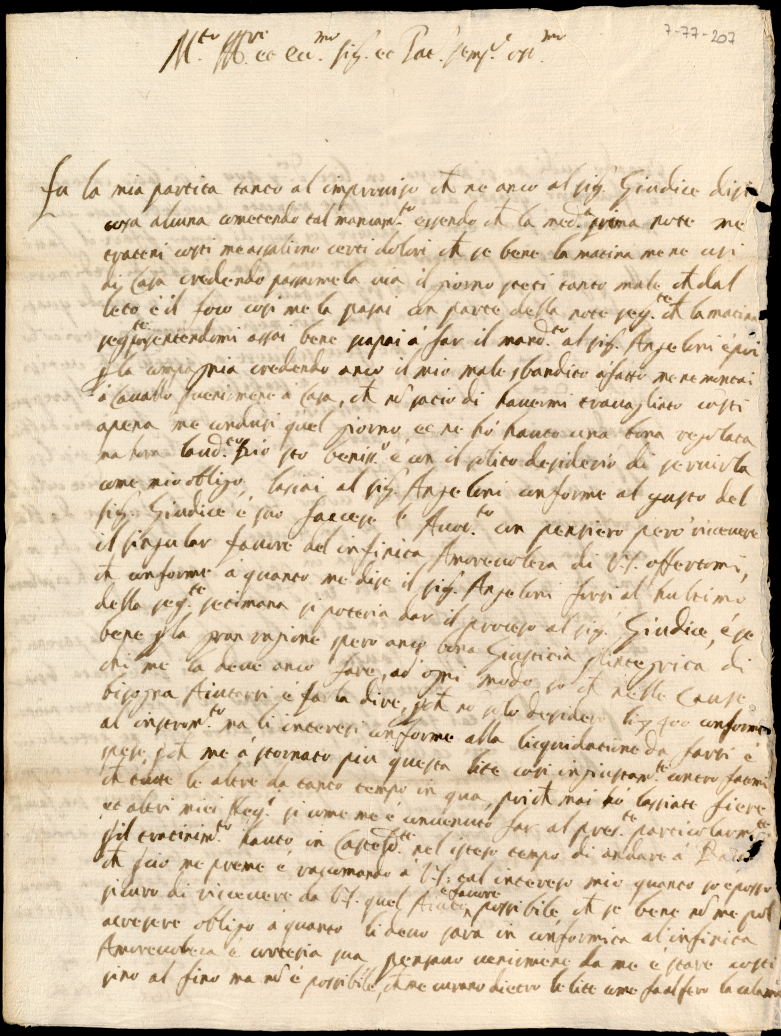 7-77-207
M.to Ill.re et ecc.mo sig.r et Pat. semp.e oss.mo
Fu la mia partita tanto al improviso ch ne anco al sig.r Giudice dissi
cosa alcuna cometendo tal mancam.to essendo ch la med.a prima note me
trateni costi me assalirno certi dolori ch se bene la matina me ne usi
di Casa credendo passarmela via il giorno steti tanto male ch dal
leto è il foco cosi me la passai con parte della note seg.te ch la matina
seg.te sentendomi assai bene pasai á far il mand.to al sig.r Angeloni é poi
p la compagnia credendo anco il mio male sbandito afatto me ne montai
á Cavallo é venirmene á Casa, ch nō sacio di havermi travagliato costi
apena me condusi quel giorno et ne hó hauto una bona regolata
ma hora laud.to Dio sto beniss.o é con il solito desiderio di servirla
come mio obligo. lassai al sig.r Angeloni conforme al gusto del
sig.r Giudice, é suo facese le con pensiero però ricevere
il singular favore del infinita Amorevoleza di V.S. offertomi,
ch conforme á quanto me disse il sig.r Angeloni forsi al hultimo
della seg.te setimana si poteria dar il proceso al sig.r Giudice, é se
bene p la gran ragione spero anco bona Giusticia integrita di
chi me la deve anco fare, ad ogni modo so ch nelle Cause
bisogna Aiutarsi é farla dire, ch no solo desidero conforme
al instrom.to ma li interesi conforme alla liquidatione da farsi é
spese ch me á stornato piu questa lite cosi ingiustam.te contro fatemi
ch tute le altre da tanto tempo in qua, poi ch mai hó lassiate
et altri miei Neg.i si come me é convenuto far al pres.te particolarm.te
p il tratinim.to hauto in nel isteso tempo di andare á
ch suo me preme é racomando á V.S. tal intereso mio quanto so é posso
sicuro di riccevere da V.S. quel Aiuto é favore possibile, ch se bene nō me pol
accresere obligo á quanto li devo sará in conformita al infinita
Amorevoleza é cortesia sua pensavo venirmene da me é stare costi
sino al fine ma nō é possibile, ch me corano dietro le lite come fa al fero la calamita